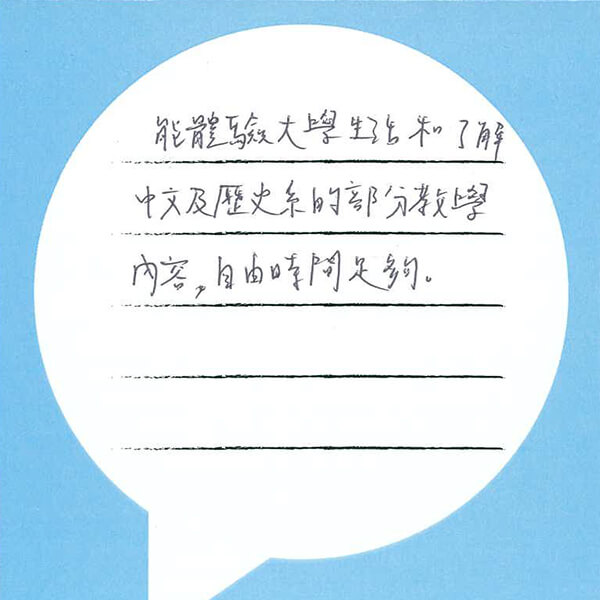 能體驗大學生活和了解
中文及歷史系的部分教學
內容，自由時間足夠。